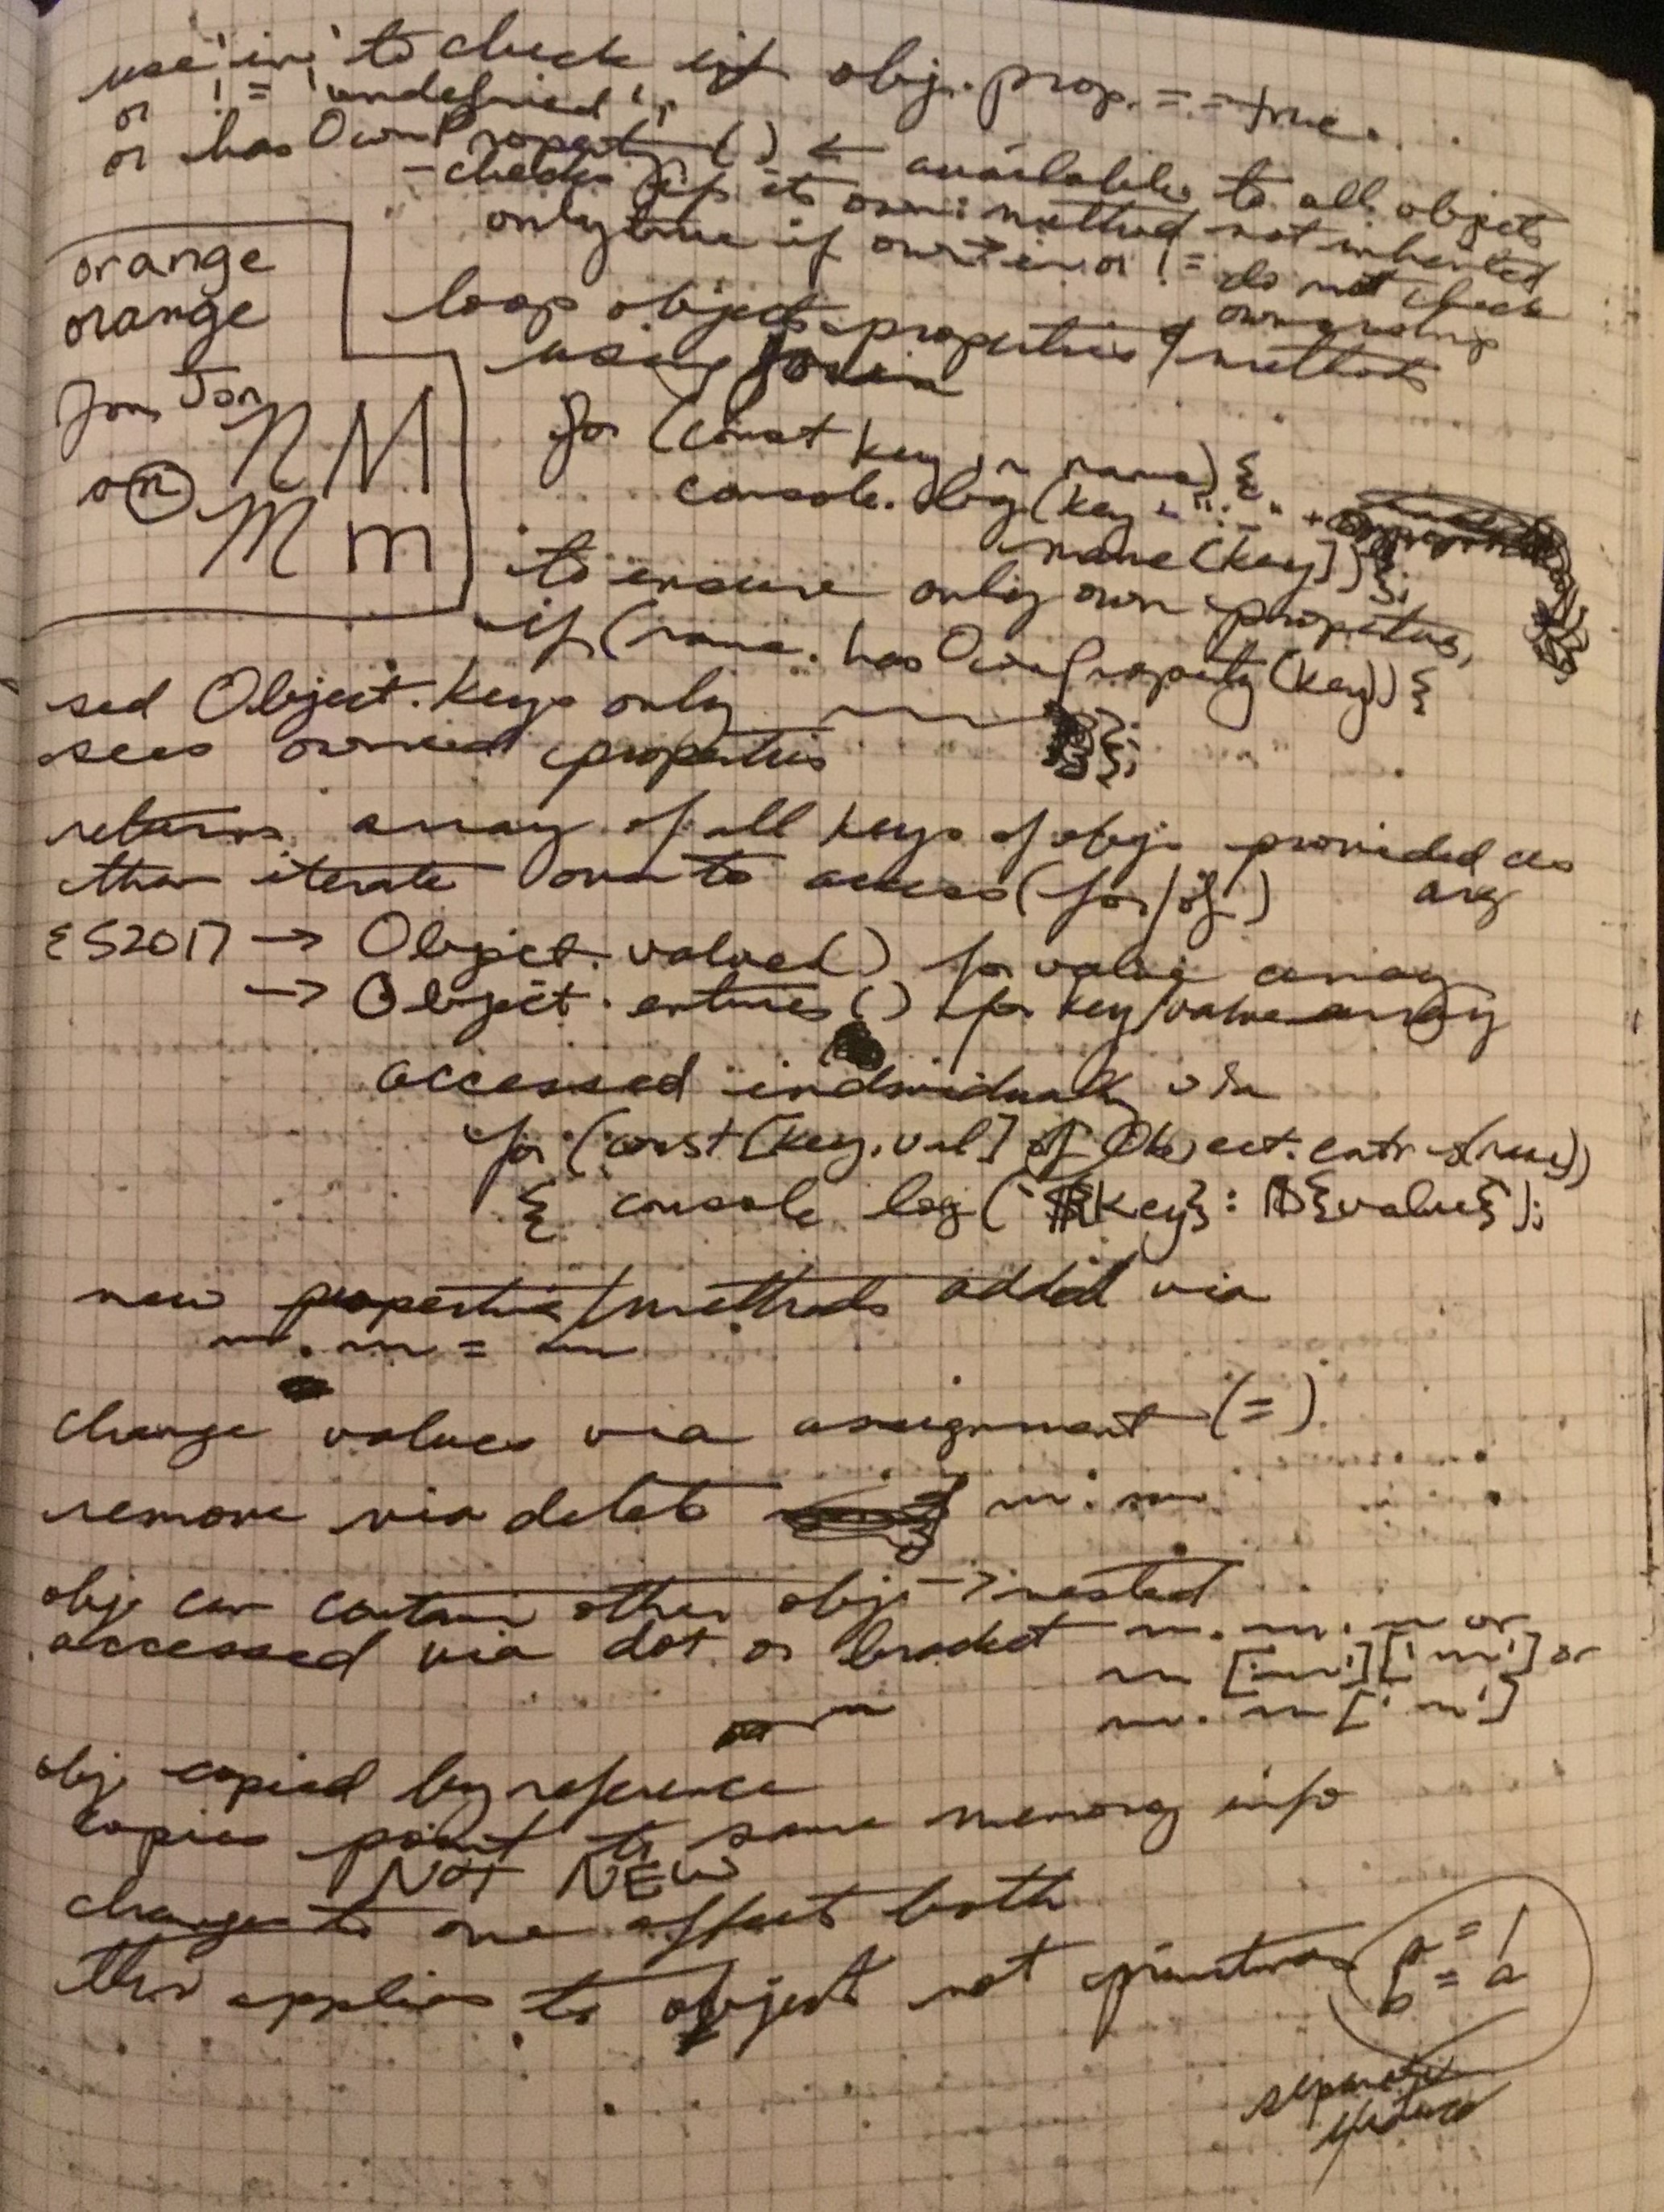 use 'in' to check if obj.prop. == true.
or != 'undefined';
or hasOwnProperty() ← available to all objects
- checks if its own method not inherited
only true if own → in or != do not check
ownership
orange
orange
Jon Jon
on
n M
M m
loop object properties / methods
using for in
for (const key in name) {
console.log(key + ": " +
name[key])};
to ensure only own properties,
if (name.hasOwnProperty(key)) {
}};
Object.keys only
sees owned properties
returns array of all keys of obj. provided as
arg
then iterate over to access (for/of)
ES2017 → Object.values() for value array
→ Object.entries() for key/value array
accessed individually via
for (const [key, val] of Object.entries(name))
{ console log(`${key}: ${value}`);
new properties/methods added via
m.m = m
change values via assignment (=)
remove via delete m.m
obj can contain other obj → nested
accessed via dot or bracket m.m.m or
m['m']['m'] or
m.m['m']
obj copied by reference
copies point to same memory info
NOT NEW
changes to one affect both
this applies to object not primitives
a = 1
b = a
separate